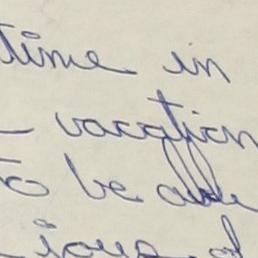 time in
- vacation
to be able